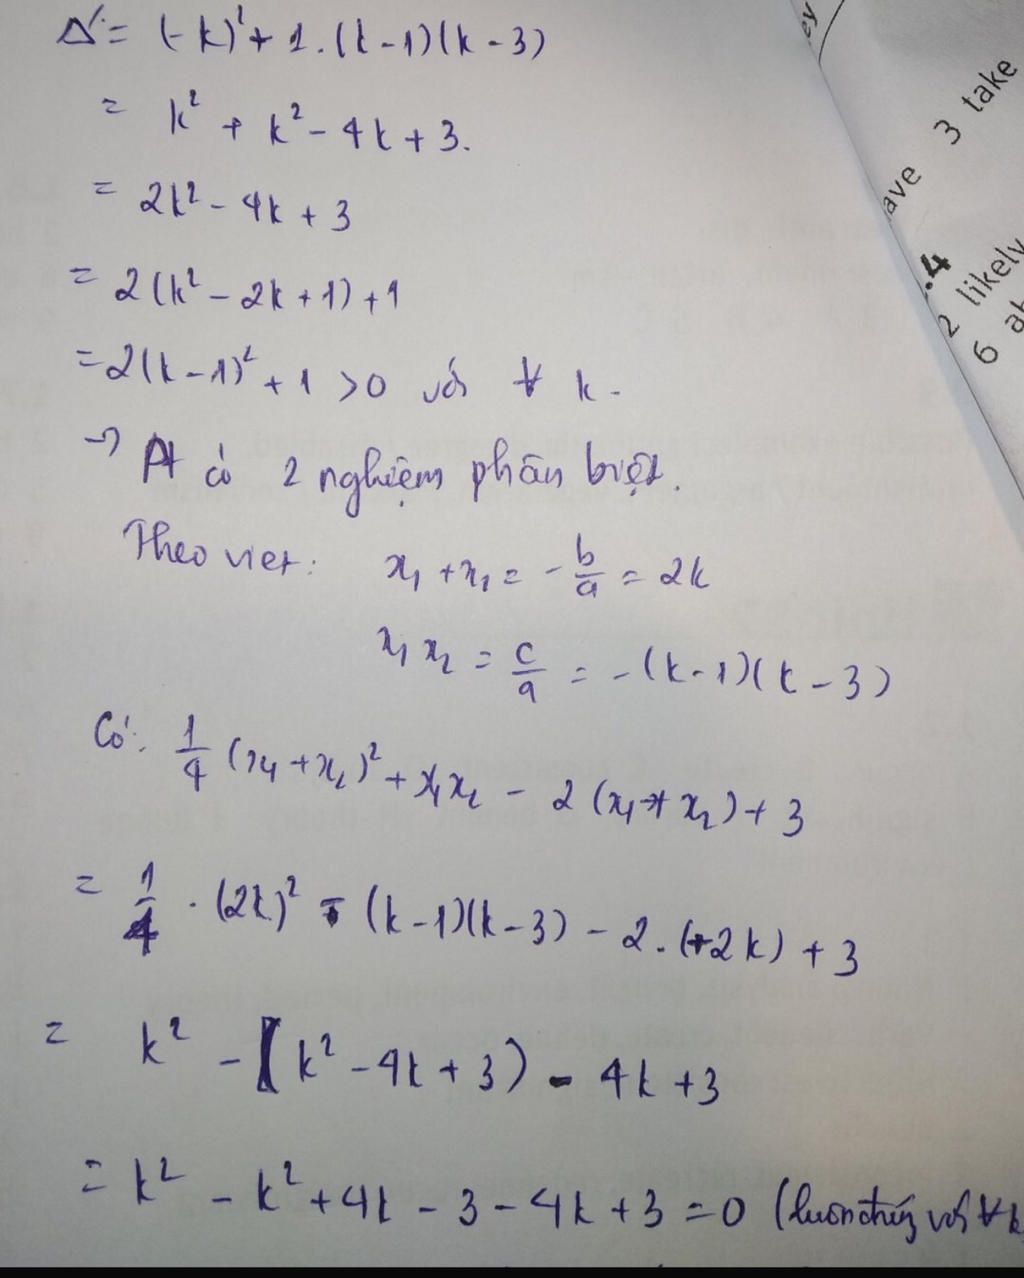 Δ' = (-k)² + 1.(k-1)(k-3)
= k² + k² - 4k + 3.
= 2k² - 4k + 3
= 2(k² - 2k + 1) + 1
= 2(k-1)² + 1 > 0 với ∀ k.
→ Pt có 2 nghiệm phân biệt.
Theo viet: x₁ + x₁ = - b/a = 2k
x₁ x₂ = c/a = -(k-1)(k-3)
Có: 1/4 (x₁ + x₂)² + x₁x₂ - 2(x₁ + x₂) + 3
= 1/4 . (2k)² - (k-1)(k-3) - 2.(+2k) + 3
= k² - (k² - 4k + 3) - 4k + 3
= k² - k² + 4k - 3 - 4k + 3 = 0 (luôn đúng với ∀ k
ey
ave 3 take
.4
2 likely
6